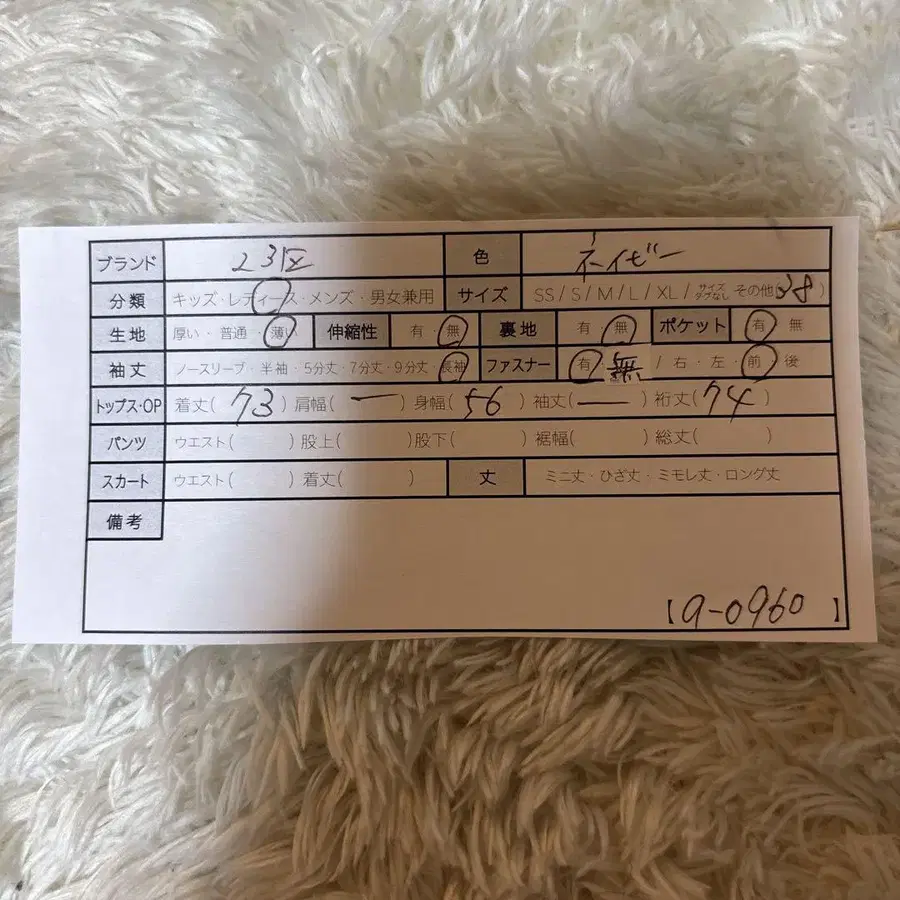 ブランド 23区 色 ネイビー
分類 キッズ・レディース・メンズ・男女兼用 サイズ SS/S/M/L/XL/サイズタグなし その他(38)
生地 厚い・普通・薄い 伸縮性 有・無 裏地 有・無 ポケット 有・無
袖丈 ノースリーブ・半袖・5分丈・7分丈・9分丈・長袖 ファスナー 有 無 / 右・左・前・後
トップス・OP 着丈(73)肩幅(ー)身幅(56)袖丈(ー)裄丈(74)
パンツ ウエスト( )股上( )股下( )裾幅( )総丈( )
スカート ウエスト( )着丈( ) 丈 ミニ丈・ひざ丈・ミモレ丈・ロング丈
備考
【9-0960】